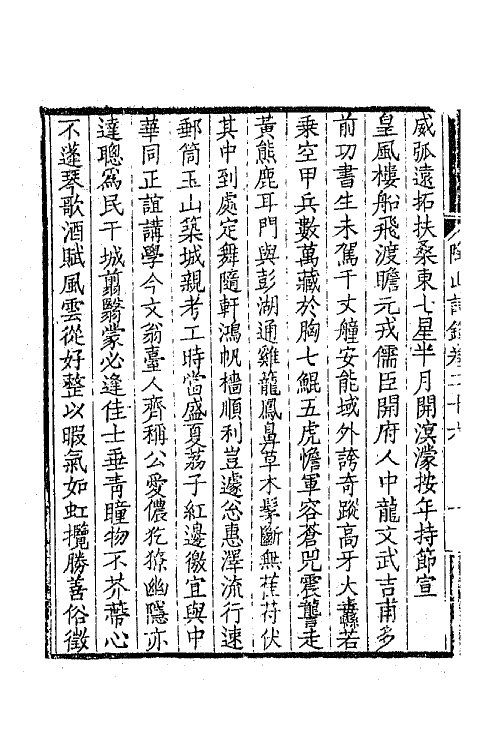 威弧遠拓扶桑東七星半月開溟濛按年持節宣
皇風樓船飛渡瞻元戎儒臣開府人中龍文武吉甫多
前功書生未駕千丈艟安能域外誇奇蹤高牙大纛若
乘空甲兵數萬藏於胸七鯤五虎憺軍容蒼兕震讋走
黃熊鹿耳門與彭湖通雞龍鳳鼻草木髼斷無萑苻伏
其中到處定舞隨軒鴻帆檣順利豈遽怱惠澤流行速
郵筒玉山築城親考工時當盛夏荔子紅邊徼宜與中
華同正誼講學今文翁臺人齊稱公愛儂犵猺幽隱亦
達聰爲民干城翦翳蒙必逢佳士垂青瞳物不芥蔕心
不蓬琴歌酒賦風雲從好整以暇氣如虹攬勝善俗徵
詩錄卷二十六